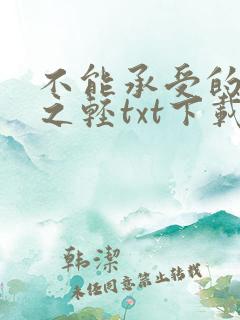 不能承受的
之轻txt下载
韩潔
未任同意禁止转载